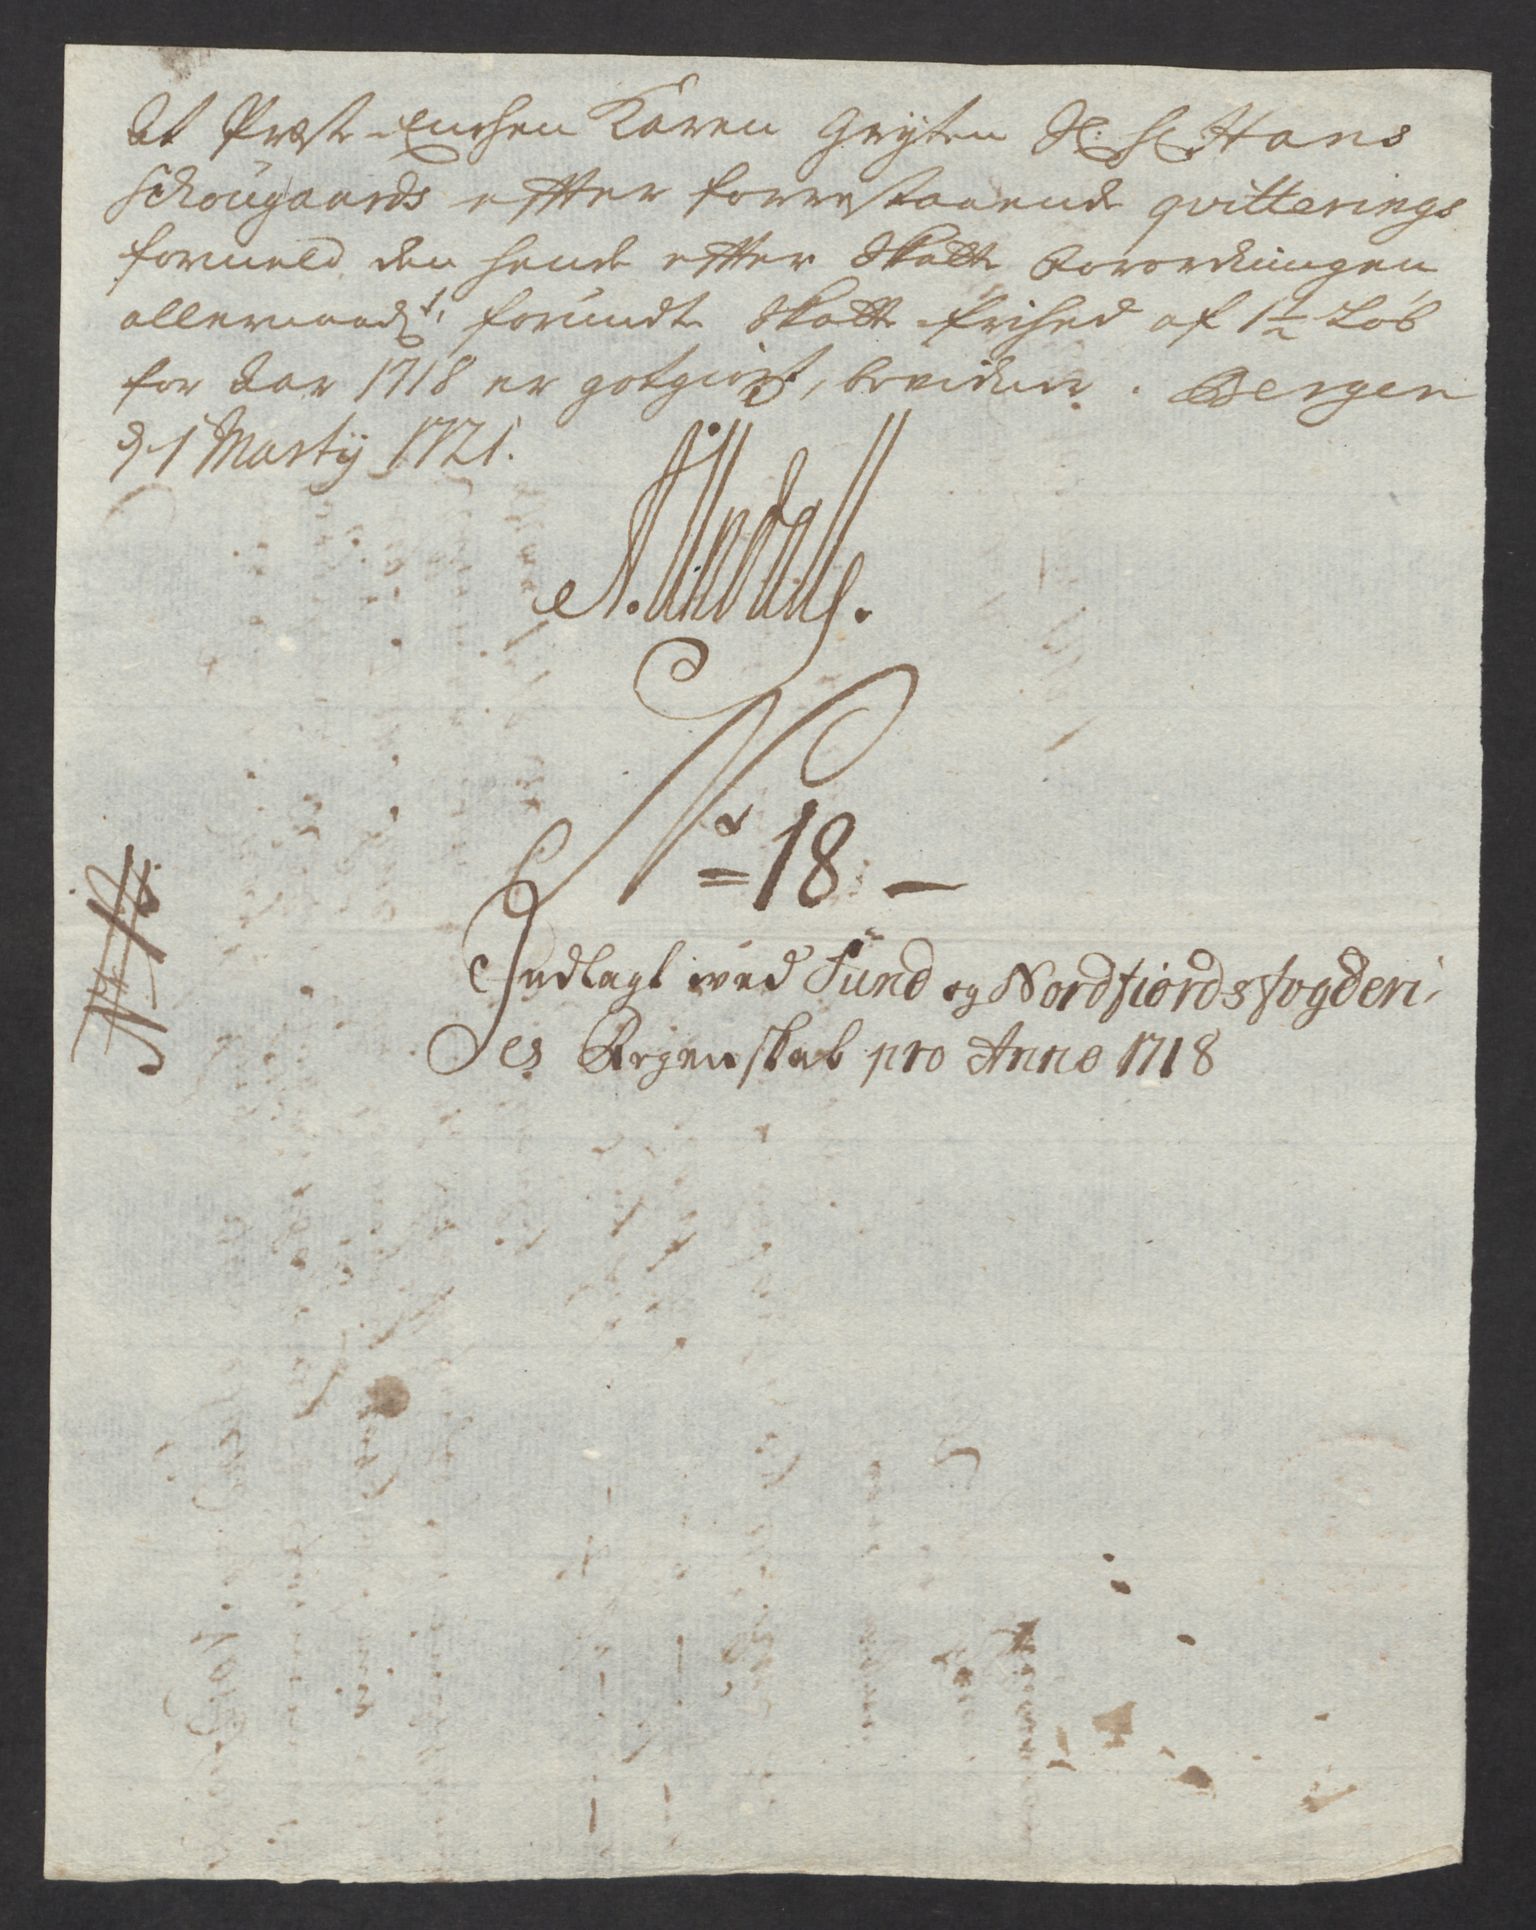 At Præste Enchen Karen Gryten Sl: Hr Hans
Schougaards effter forrestaaende qvitterings
formeld den hende effter Skatte Forordningen
allernaadst: forundte Skatte frihed af 1½ Løb
for Aar 1718 er gotgiort, bevidner. Bergen
d 1 Marty 1721.
No 18
Indlagt ved Sund og Nordfiords fogderi,
es Regenskab pro Anno 1718